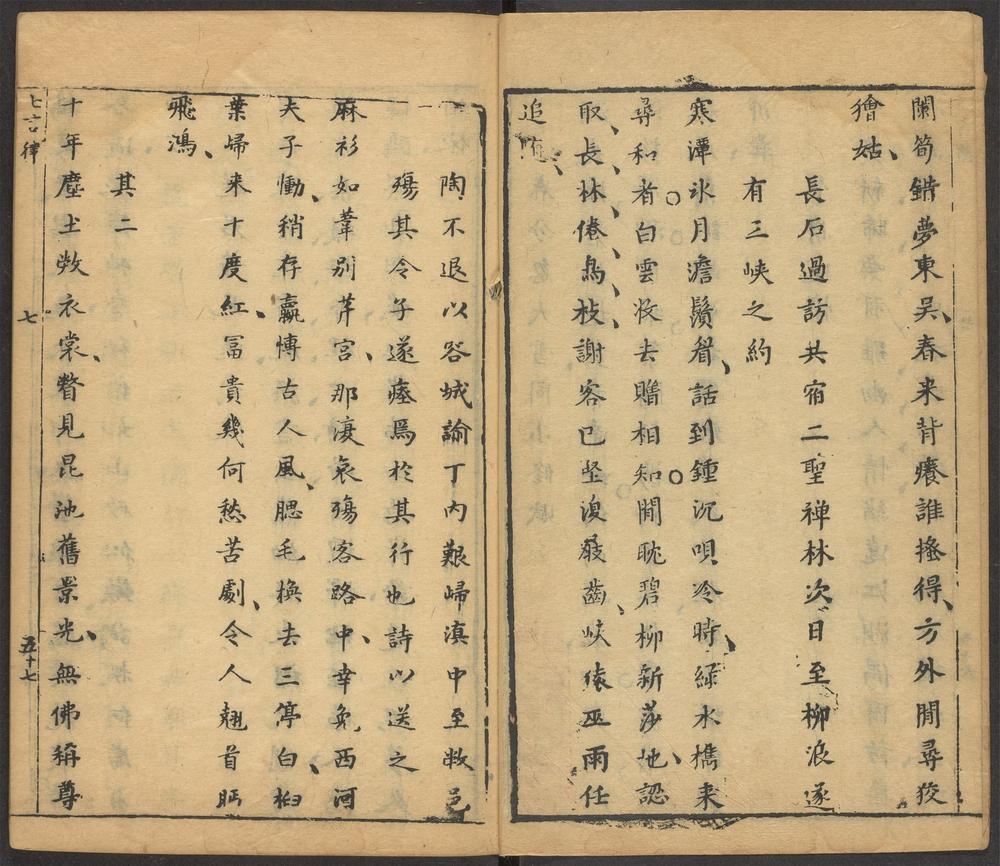 闌筍錯夢東吳春来背癢誰搔得方外閒尋狡
獪姑
長石過訪共宿二聖禅林次日至柳浪遂
有三峽之約
寒潭氷月澹鬚眉話到鍾沉唄冷時綠水樵来
尋和者白雲收去贈相知閒眈碧柳新莎地認
取長林倦鳥枝謝客已坚湌發齒峽猿巫雨任
追
陶不退以谷城諭丁内艱歸滇中至敝邑
殤其令子遂瘞焉於其行也詩以送之
麻衫如葦別芹宮那復哀殤客路中幸免西河
夫子慟稍存嬴博古人風腮毛換去三停白桕
葉歸来十度紅冨貴幾何愁苦劇令人翹首眄
飛鴻
其二
十年塵土敝衣裳瞥見昆池舊景光無佛稱尊
七言律 七 五十七